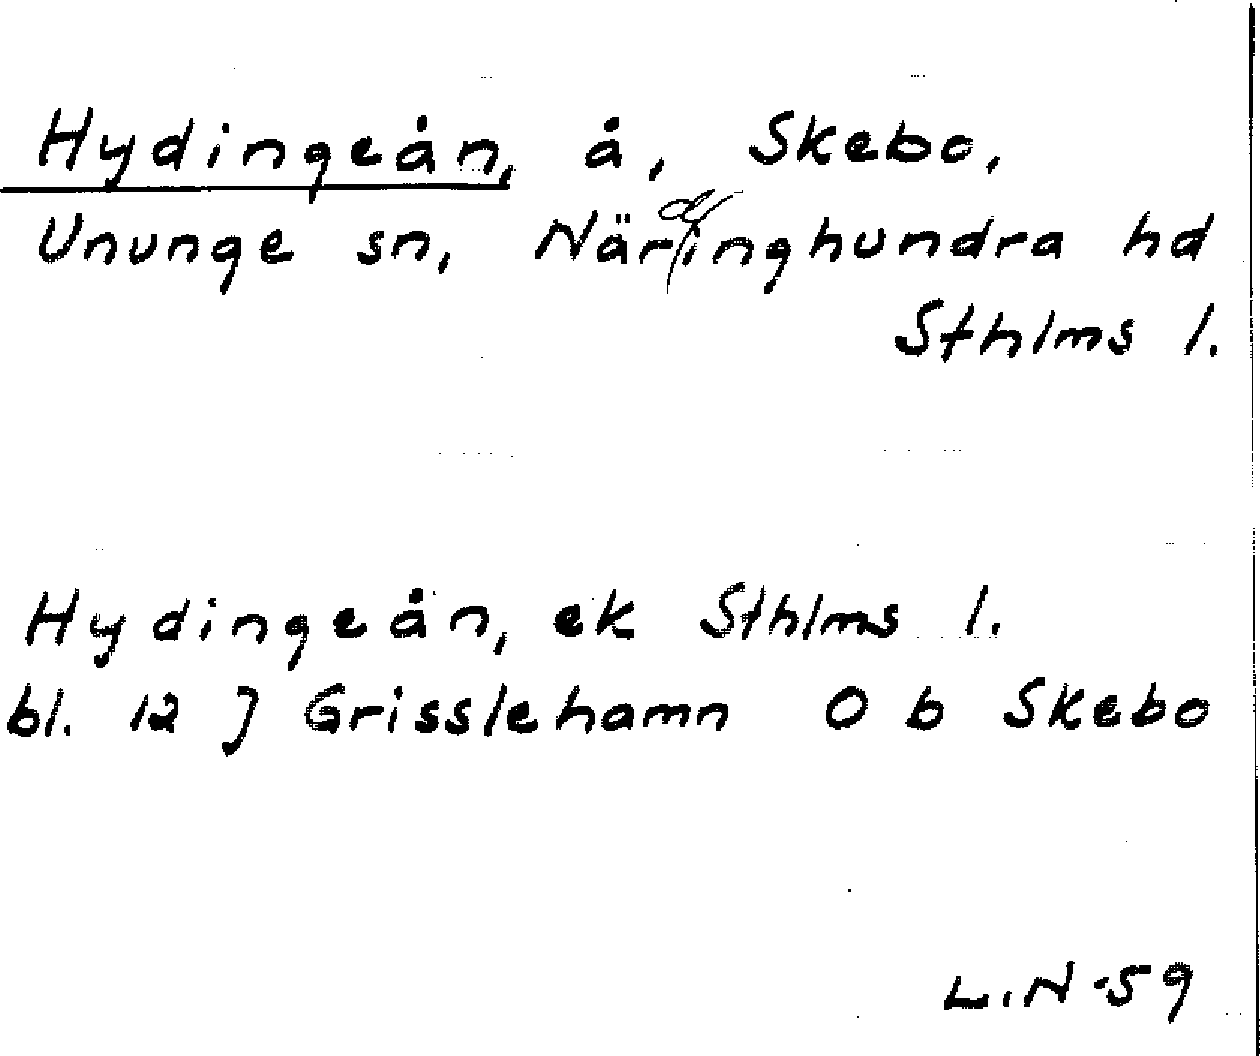 Hydingeån, å, Skebo,
Ununge sn, Närdinghundra hd
Sthlms l.
Hydingeån, ek Sthlms l.
bl. 12 J Grisslehamn O b Skebo
L.N -59